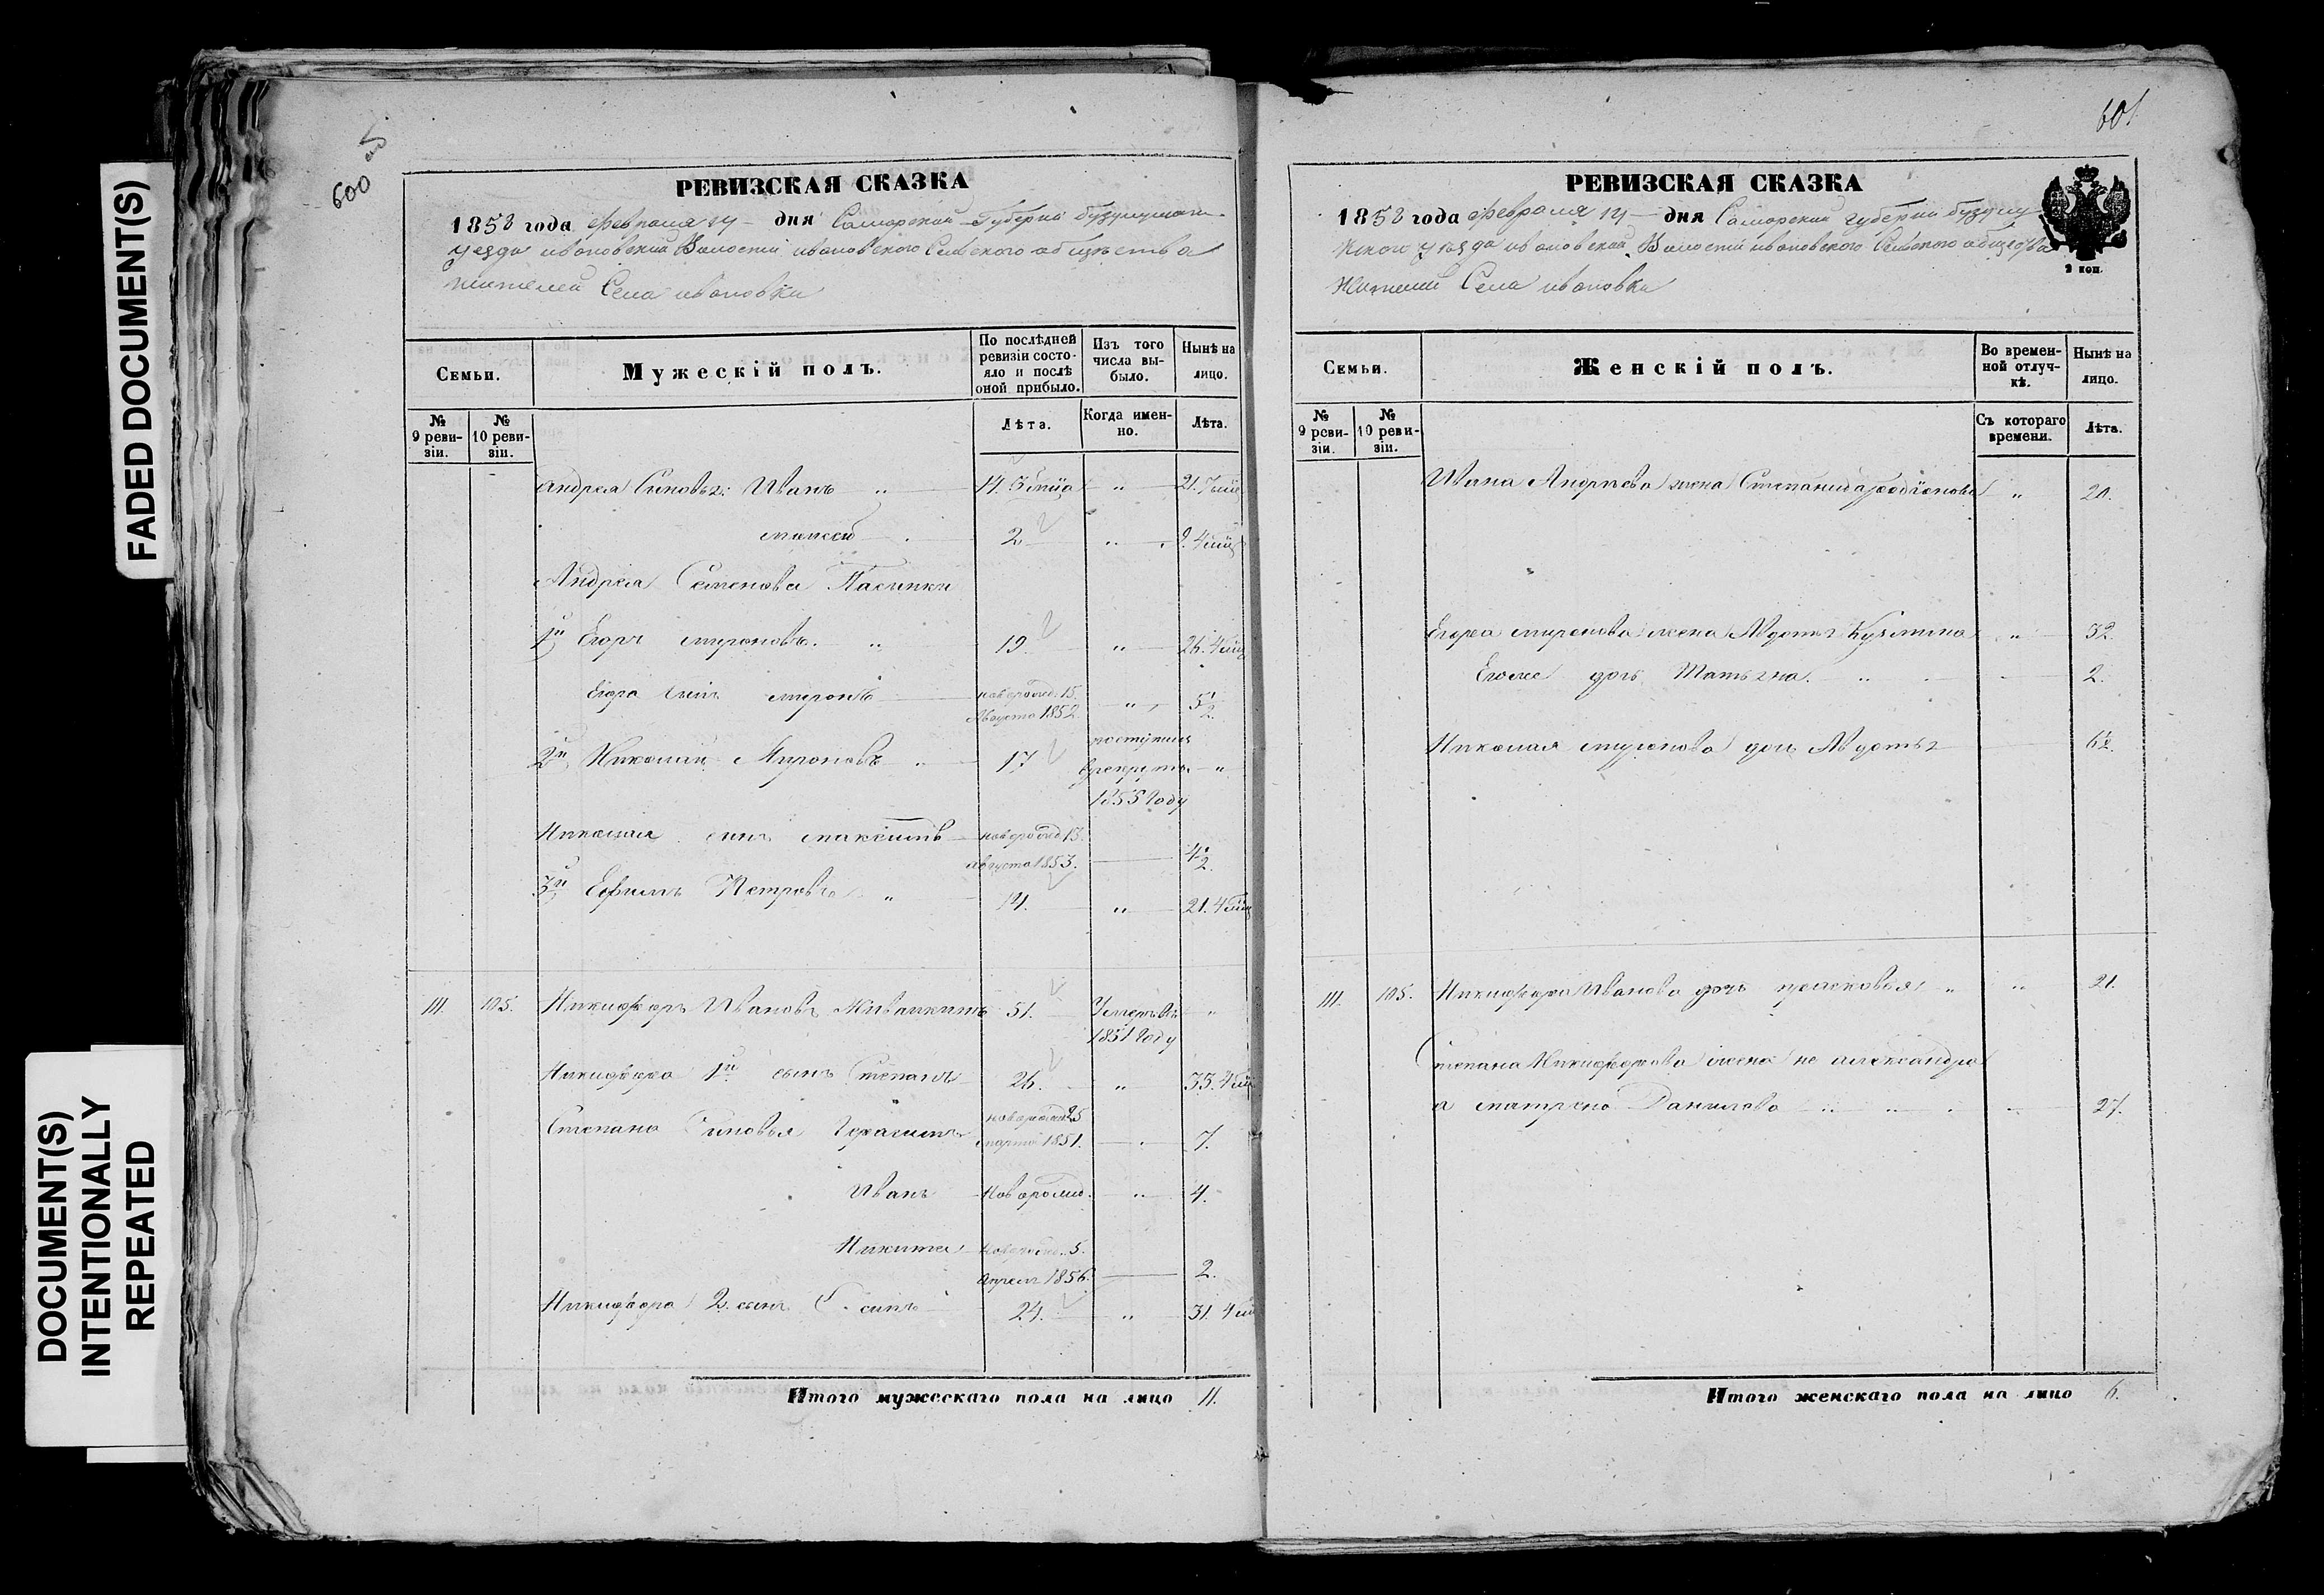 FADED DOCUMENT(S)
DOCUMENT(S)
INTENTIONALLY
REPEATED
600 об
РЕВИЗСКАЯ СКАЗКА
1858 года февраля 14 дня Самарской Губерни бузулуцкаго
уезда ивановской Волости ивановского Сельского общества
жителей Села ивановки
Семьи.
Мужескій полъ.
По послѣдней ревизіи состояло и послѣ оной прибыло.
Изъ того числа выбыло.
Нынѣ на лицо.
№ 9 ревизіи.
№ 10 ревизіи.
Лѣта.
Когда именно.
Лѣта.
Андрея Сыновья: Иванъ „ 14. „ 21.
2 „ 9.
Андрея Семенова Пасынки
1й Егоръ мироновъ. „ 19. „ 26.
Егора сынъ миронъ новорожд. 15.
Августа 1852 „ 5½
2й Николай Мироновъ „ 17 поступилъ
врекруты „
1855 Году
Николая сынъ максимъ новорожд. 13.
августа 1853. 4½
3й Ефимъ Петровъ „ 14. „ 21.
111. 105. Никифоръ Ивановъ 51. Умеръ въ „
1851 Году
Никифора 1й сынъ Степанъ 26. „
Степана Сыновья Герасимъ новорожд. 25
марта 1851. 7.
Иванъ Новорожд. „ 4.
Никита Новорожд. 5.
Апреля 1856. 2.
Никифора 2. сынъ 24. „ 31.
Итого мужескаго пола на лицо 11.
601
РЕВИЗСКАЯ СКАЗКА
1858 года февраля 14 дня Самарской губерни бузулу
уезда ивановской Волости ивановского Сельского общества
Жителей Села ивановки
2 коп.
Семьи.
Женскій полъ.
Во временной отлучкѣ.
Нынѣ на лицо.
№ 9 ревизіи.
№ 10 ревизіи.
Съ котораго времени.
Лѣта.
Ивана Андреева жена Степанида родіонова „ 20.
Егора миронова жена Авдотья Кузмина „ 32.
Егоже дочь Татьяна. „ 2.
Николая миронова дочь Авдотья 6½.
111. 105. Никифора Иванова дочь прасковья „ „ 21.
Степана Никифорова жена не александра
а матрена Данилова „ „ 27.
Итого женскаго пола на лицо 6.